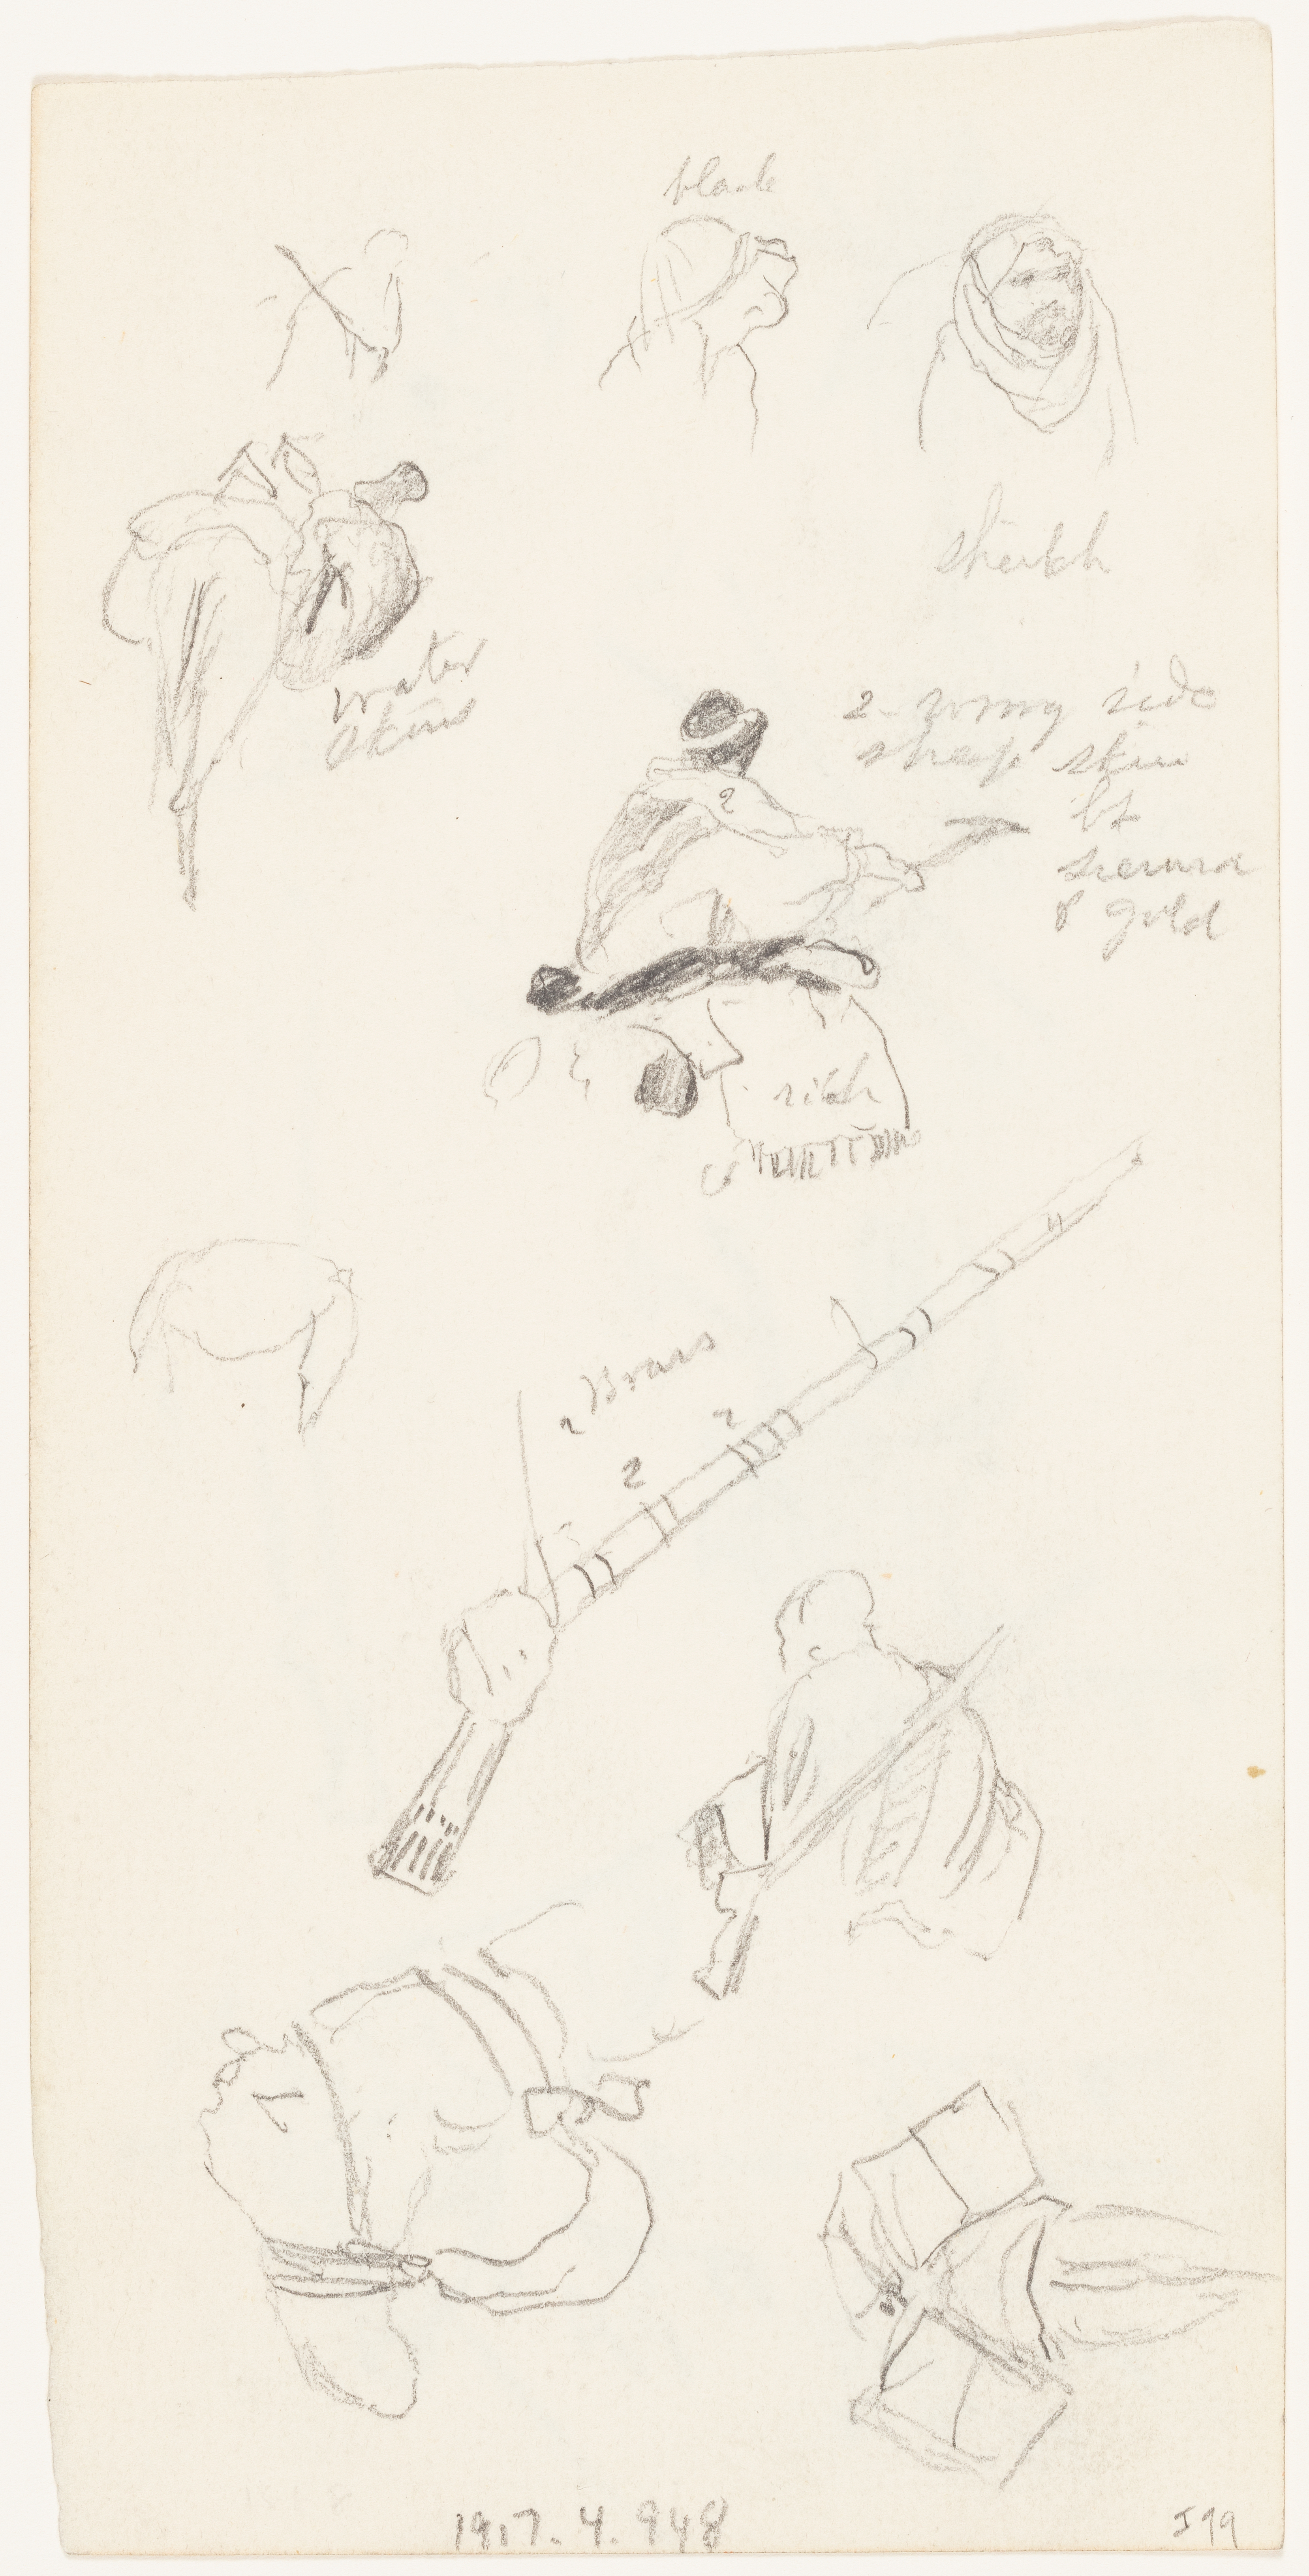 black
sheikh
water
skins
2 - wrong side
sheep skin
bt
sienna
& gold
2
rich
2 Brass
2
2
1917.4.948
J99